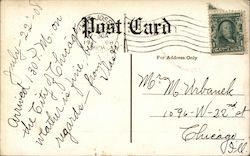 Post Card
For Address Only
July-22-08
Arrived 1:30 P.M. on
the City of Chicago
weather is fine
regards from
Mrs M Urbanek
1096-W-22nd st
Chicago
Ill